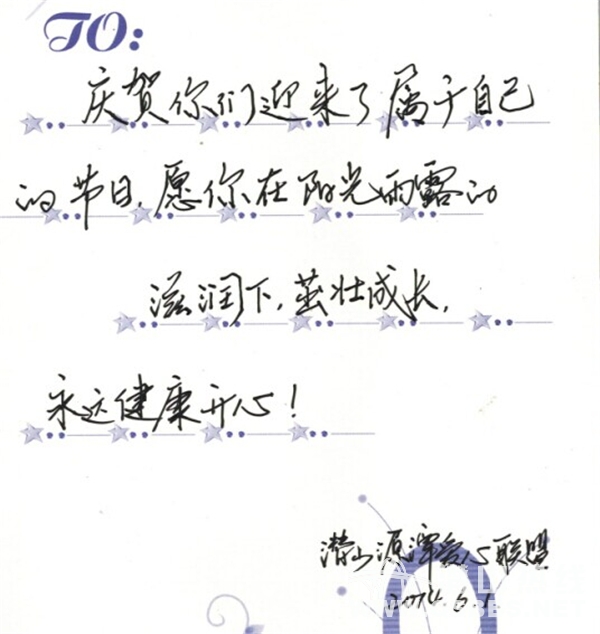 TO:
庆贺你们迎来了属于自己
的节日.愿你在阳光雨露的
滋润下,茁壮成长,
永远健康开心!
潜山源潭爱心联盟
2014.6.1